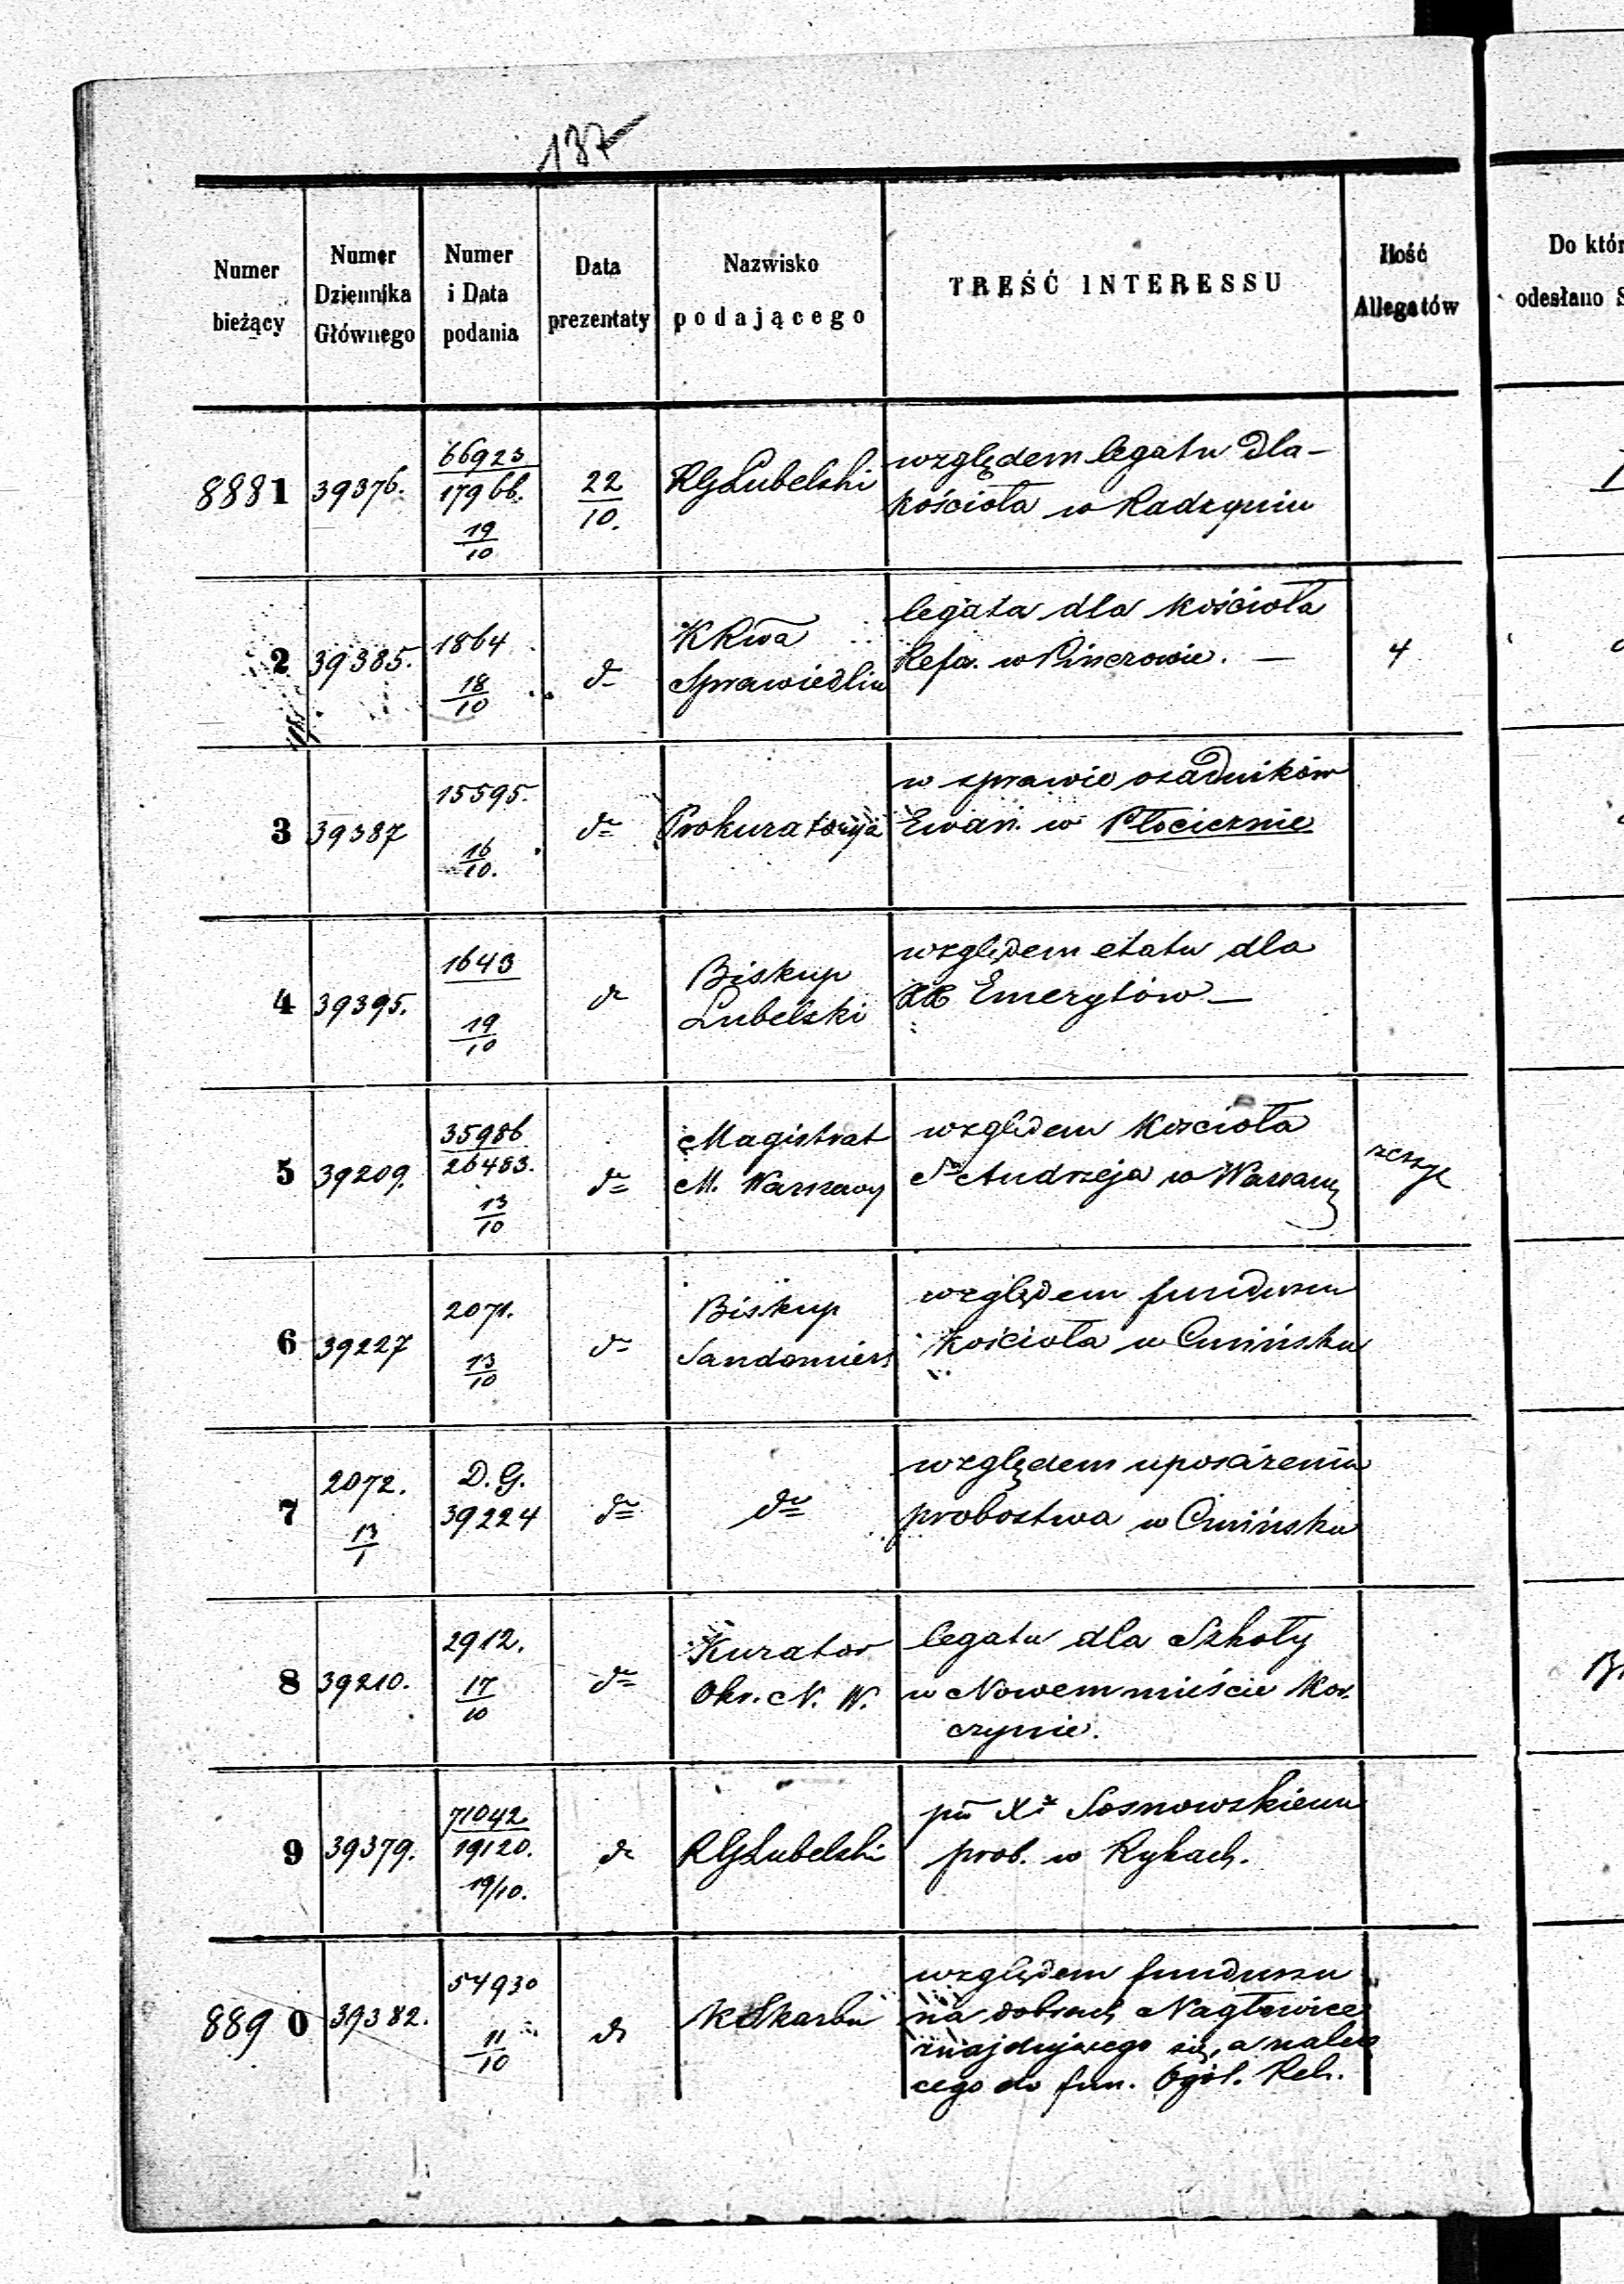 137
Numer
bieżący
Numer
Dziennika
Głównego
Numer
i Data
podania
Data
prezentaty
Nazwisko
podającego
TREŚĆ INTERESSU
Ilość
Allegatów
Do któr
odesłano S
8881
39376.
66923
17966.
19
10
22
10.
RGLubelski
względem legatu dla –
kościoła w Radzyniu
2
39385.
1864
18
10
d–
KRwa
Sprawiedliw
legata dla kościoła
Refor. w Pinczowie. —
4
3
39387
15595.
16
10.
do
Prokuratorya
w sprawie osadników
Ewan. w Płocicznie
4
39395.
1643
19
10
do
Biskup
Lubelski
względem etatu dla
XX Emerytów —
5
39209.
35986
26483.
13
10
do
Magistrat
M. Warszawy
względem Kościoła
So Andrzeja w Warszawy
zeszyt
6
39227
2071.
13
10
do
Biskup
Sandomiers
względem funduszu
kościoła w Cmińsku
7
2072.
13
1
D. G.
39224
do
do
względem uposażenia
probostwa w Cmińsku
8
39210.
2912.
17
10
do
Kurator
Okr. N. W.
legatu dla Szkoły
w Nowem mieście Kor
czynie.
9
39379.
71042
19120.
19/10.
do
RGLubelski
pko Xo Sosnowskiemu
prob. w Rykach.
8890
39382.
54930
11
10
do
KSkarbu
względem funduszu
na dobrach Nagłowice
znajdującego się, a należą
cego do fun. Ogól. Rel.